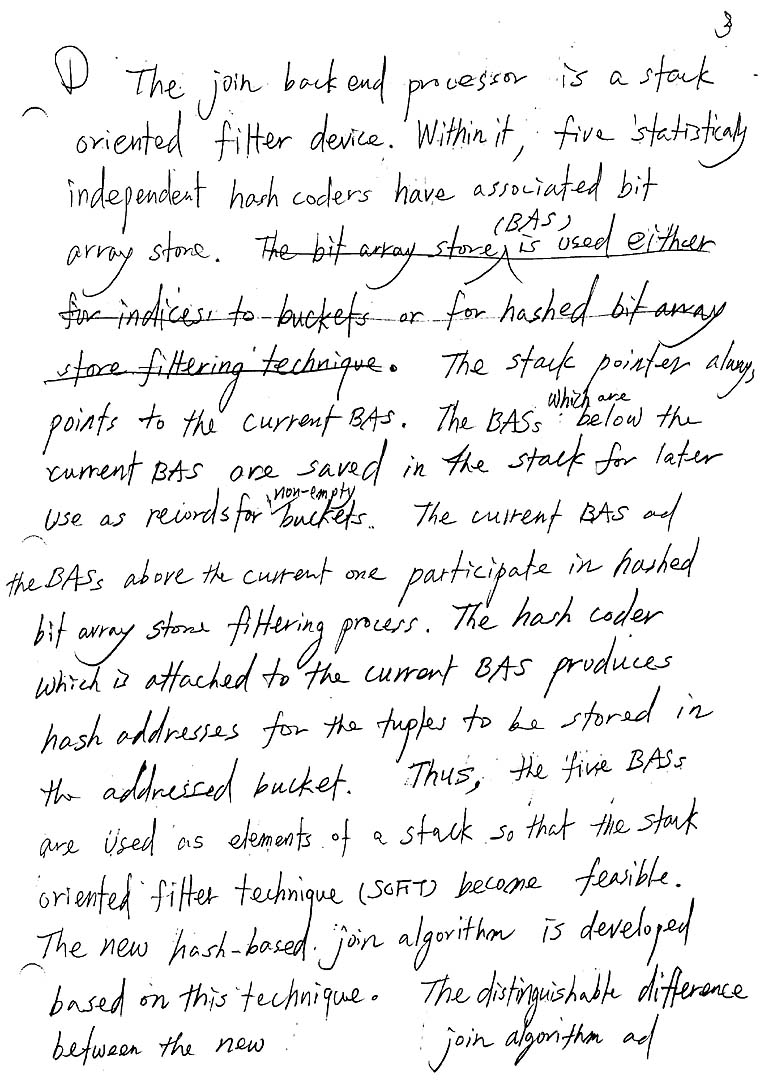 3
① The join back end processor is a stack
oriented filter device. Within it, five statistically
independent hash coders have associated bit
(BAS)
array store. The bit array store is used either
for indices to buckets or for hashed bit array
store filtering technique. The stack pointer always
points to the current BAS. The BASs which are below the
current BAS are saved in the stack for later
use as records for non-empty buckets. The current BAS ad
the BASs above the current one participate in hashed
bit array store filtering process. The hash coder
which is attached to the current BAS produces
hash addresses for the tuples to be stored in
the addressed bucket. Thus, the five BASs
are used as elements of a stack so that the stack
oriented filter technique (SOFT) become feasible.
The new hash-based join algorithm is developed
based on this technique. The distinguishable difference
between the new join algorithm ad